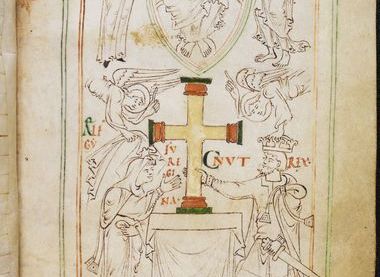 ÆLF
GY
FU
RE
GI
NA
CNUT REX